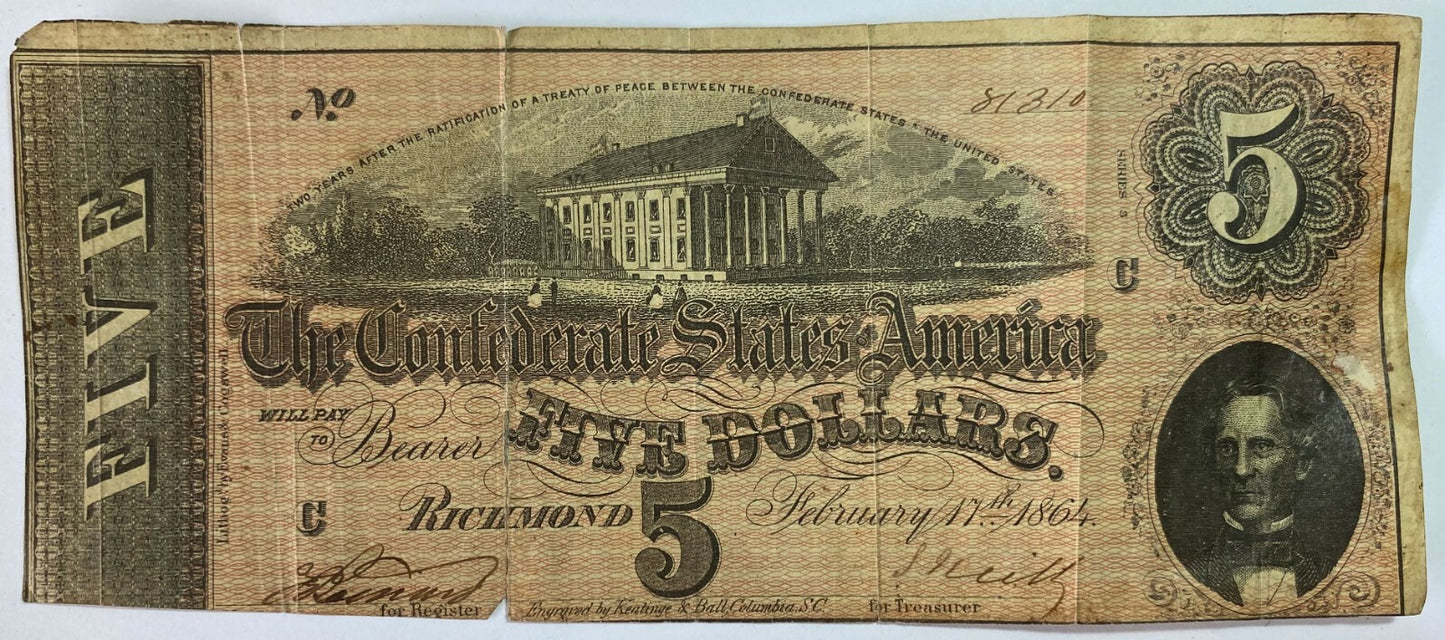 No 81310
TWO YEARS AFTER THE RATIFICATION OF A TREATY OF PEACE BETWEEN THE CONFEDERATE STATES & THE UNITED STATES
5
SERIES 3
C
FIVE
The Confederate States of America
WILL PAY
TO Bearer FIVE DOLLARS.
C
RICHMOND 5 February 17th 1864.
for Register
Engraved by Keatinge & Ball, Columbia, S.C.
for Treasurer
Lithog'd by Evans & Cogswell